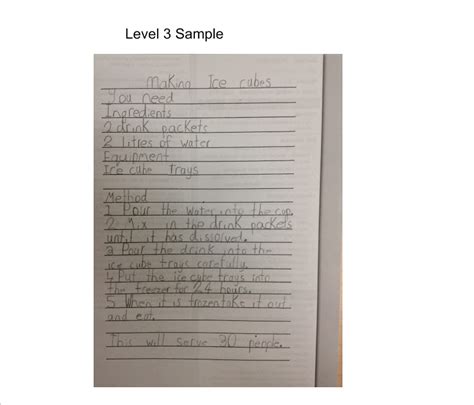 Level 3 Sample
Making Ice cubes
You need
Ingredients
2 drink packets
2 litres of water
Equipment
Ice cube Trays
Method
1 Pour the water into the cup.
2 Mix in the drink packets
until it has dissolved.
3 Pour the drink into the
ice cube trays carefully.
4 Put the ice cube trays into
the freezer for 24 hours.
5 When it is frozen take it out
and eat.
This will serve 30 people.